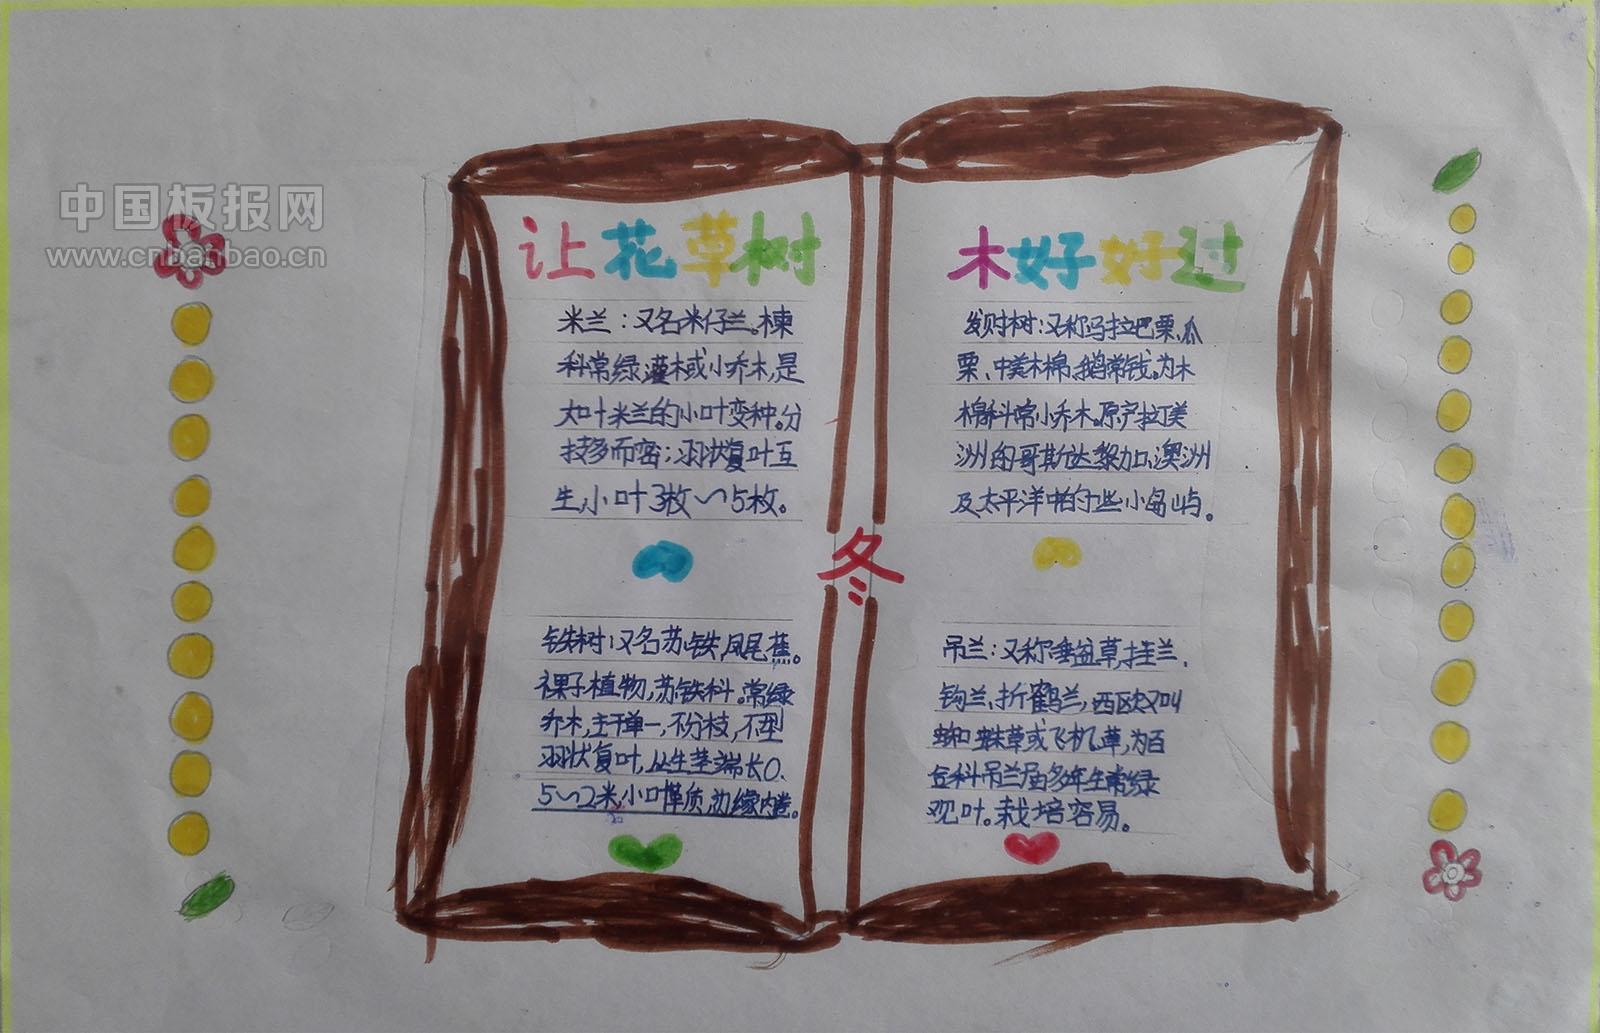 中国板报网
www.cnbanbao.cn
让花草树
木好好过
冬
米兰：又名米仔兰。楝
科常绿灌木或小乔木,是
大叶米兰的小叶变种。分
技多而密；羽状复叶互
生,小叶3枚～5枚。
铁树：又名苏铁,凤尾蕉。
裸子植物,苏铁科。常绿
乔木,主干单一,不分枝,不型
羽状复叶,丛生茎端长0.
5～2米,小叶革质,边缘内卷。
发财树：又称马拉巴栗、瓜
栗、中美木棉、鹅掌钱。为木
棉科常小乔木。原产拉丁美
洲的哥斯达黎加、澳洲
及太平洋中的一些小岛屿。
吊兰：又称垂盆草,挂兰、
钩兰、折鹤兰,西欧又叫
蜘蛛草或飞机草,为百
合科吊兰属多年生常绿
观叶。栽培容易。